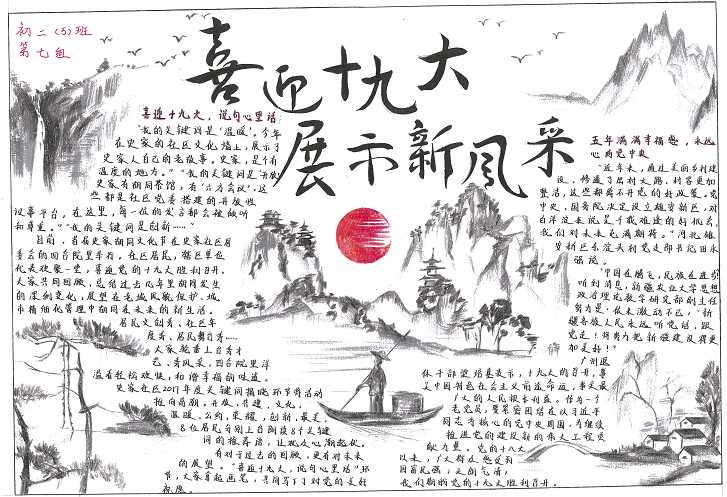 初二(5)班
第七组
喜迎十九大
展示新风采
喜迎十九大,说句心里话:
"我的关键词是'温暖',今年
在史家的社区文化墙上,展示了
史家人自己的老故事。史家,是个有
温度的地方。""我的关键词是'开放'
史家有胡同茶馆,有'六方会议',这
些都是社区党委搭建的开放性
议事平台,在这里,每一位的发言都会被倾听
和尊重。""我的关键词是创新……"
目前,首届史家胡同文化节在史家社区居
委会的四合院里举行。社区居民,辖区单位
代表欢聚一堂,喜迎党的十九大胜利召开。
大家共同回顾,总结过去几年里胡同发生
的深刻变化,展望在老城风貌保护、城
市精细化管理中胡同在未来的新生活。
居民文创秀、社区年
度秀、居民舞台秀……
人家轮番上台秀才
艺、秀风采,四合院里洋
溢着轻松欢快,和谐幸福的味道。
史家社区2017年度关键词揭晓环节将活动
推向高潮。开放、共建、文化、
温暖、公约、荣耀、创新、最走、
8位居民分别上台朗读8个关键
词的推荐语,让观众心潮起伏。
有对于过去的回顾,更有对未来
的展望。"喜迎十九大,说句心里话"环
节,大家拿起画笔,共同写下了对党的美好
祝愿。
五年满满幸福感,永远
心向党中央
"近年来,通过美丽乡村建
设,修通了出村大路,村容更加
整洁,这些都离不开党的好政策。党
中央、国务院决定设立雄安新区,对
白洋淀来说是个载难逢的好机会,
我们对未来充满期待。"河北雄
安新区
强说。
"中国在腾飞,民族在进步"
听到消息,新疆农业大学思想
政治理论教学研究部副主任
努力是一份来激动不已,"新
疆各族人民永远听党话、跟
党走!将努力把新疆建设得更
加美好!"
广州退
休干部梁结基表示,十九大的召开,事
关中国特色社会主义前途命运,事关最
广大的人民根本利益。作为一个
老党员,要紧密团结在以习近平
同志为核心的党中央周围,为继续
推进党的建设新的伟大工程贡
献力量。党的十八大
以来,广大群众感受到
国富民强,天朗气清,
我们期盼党的十九大胜利召开。